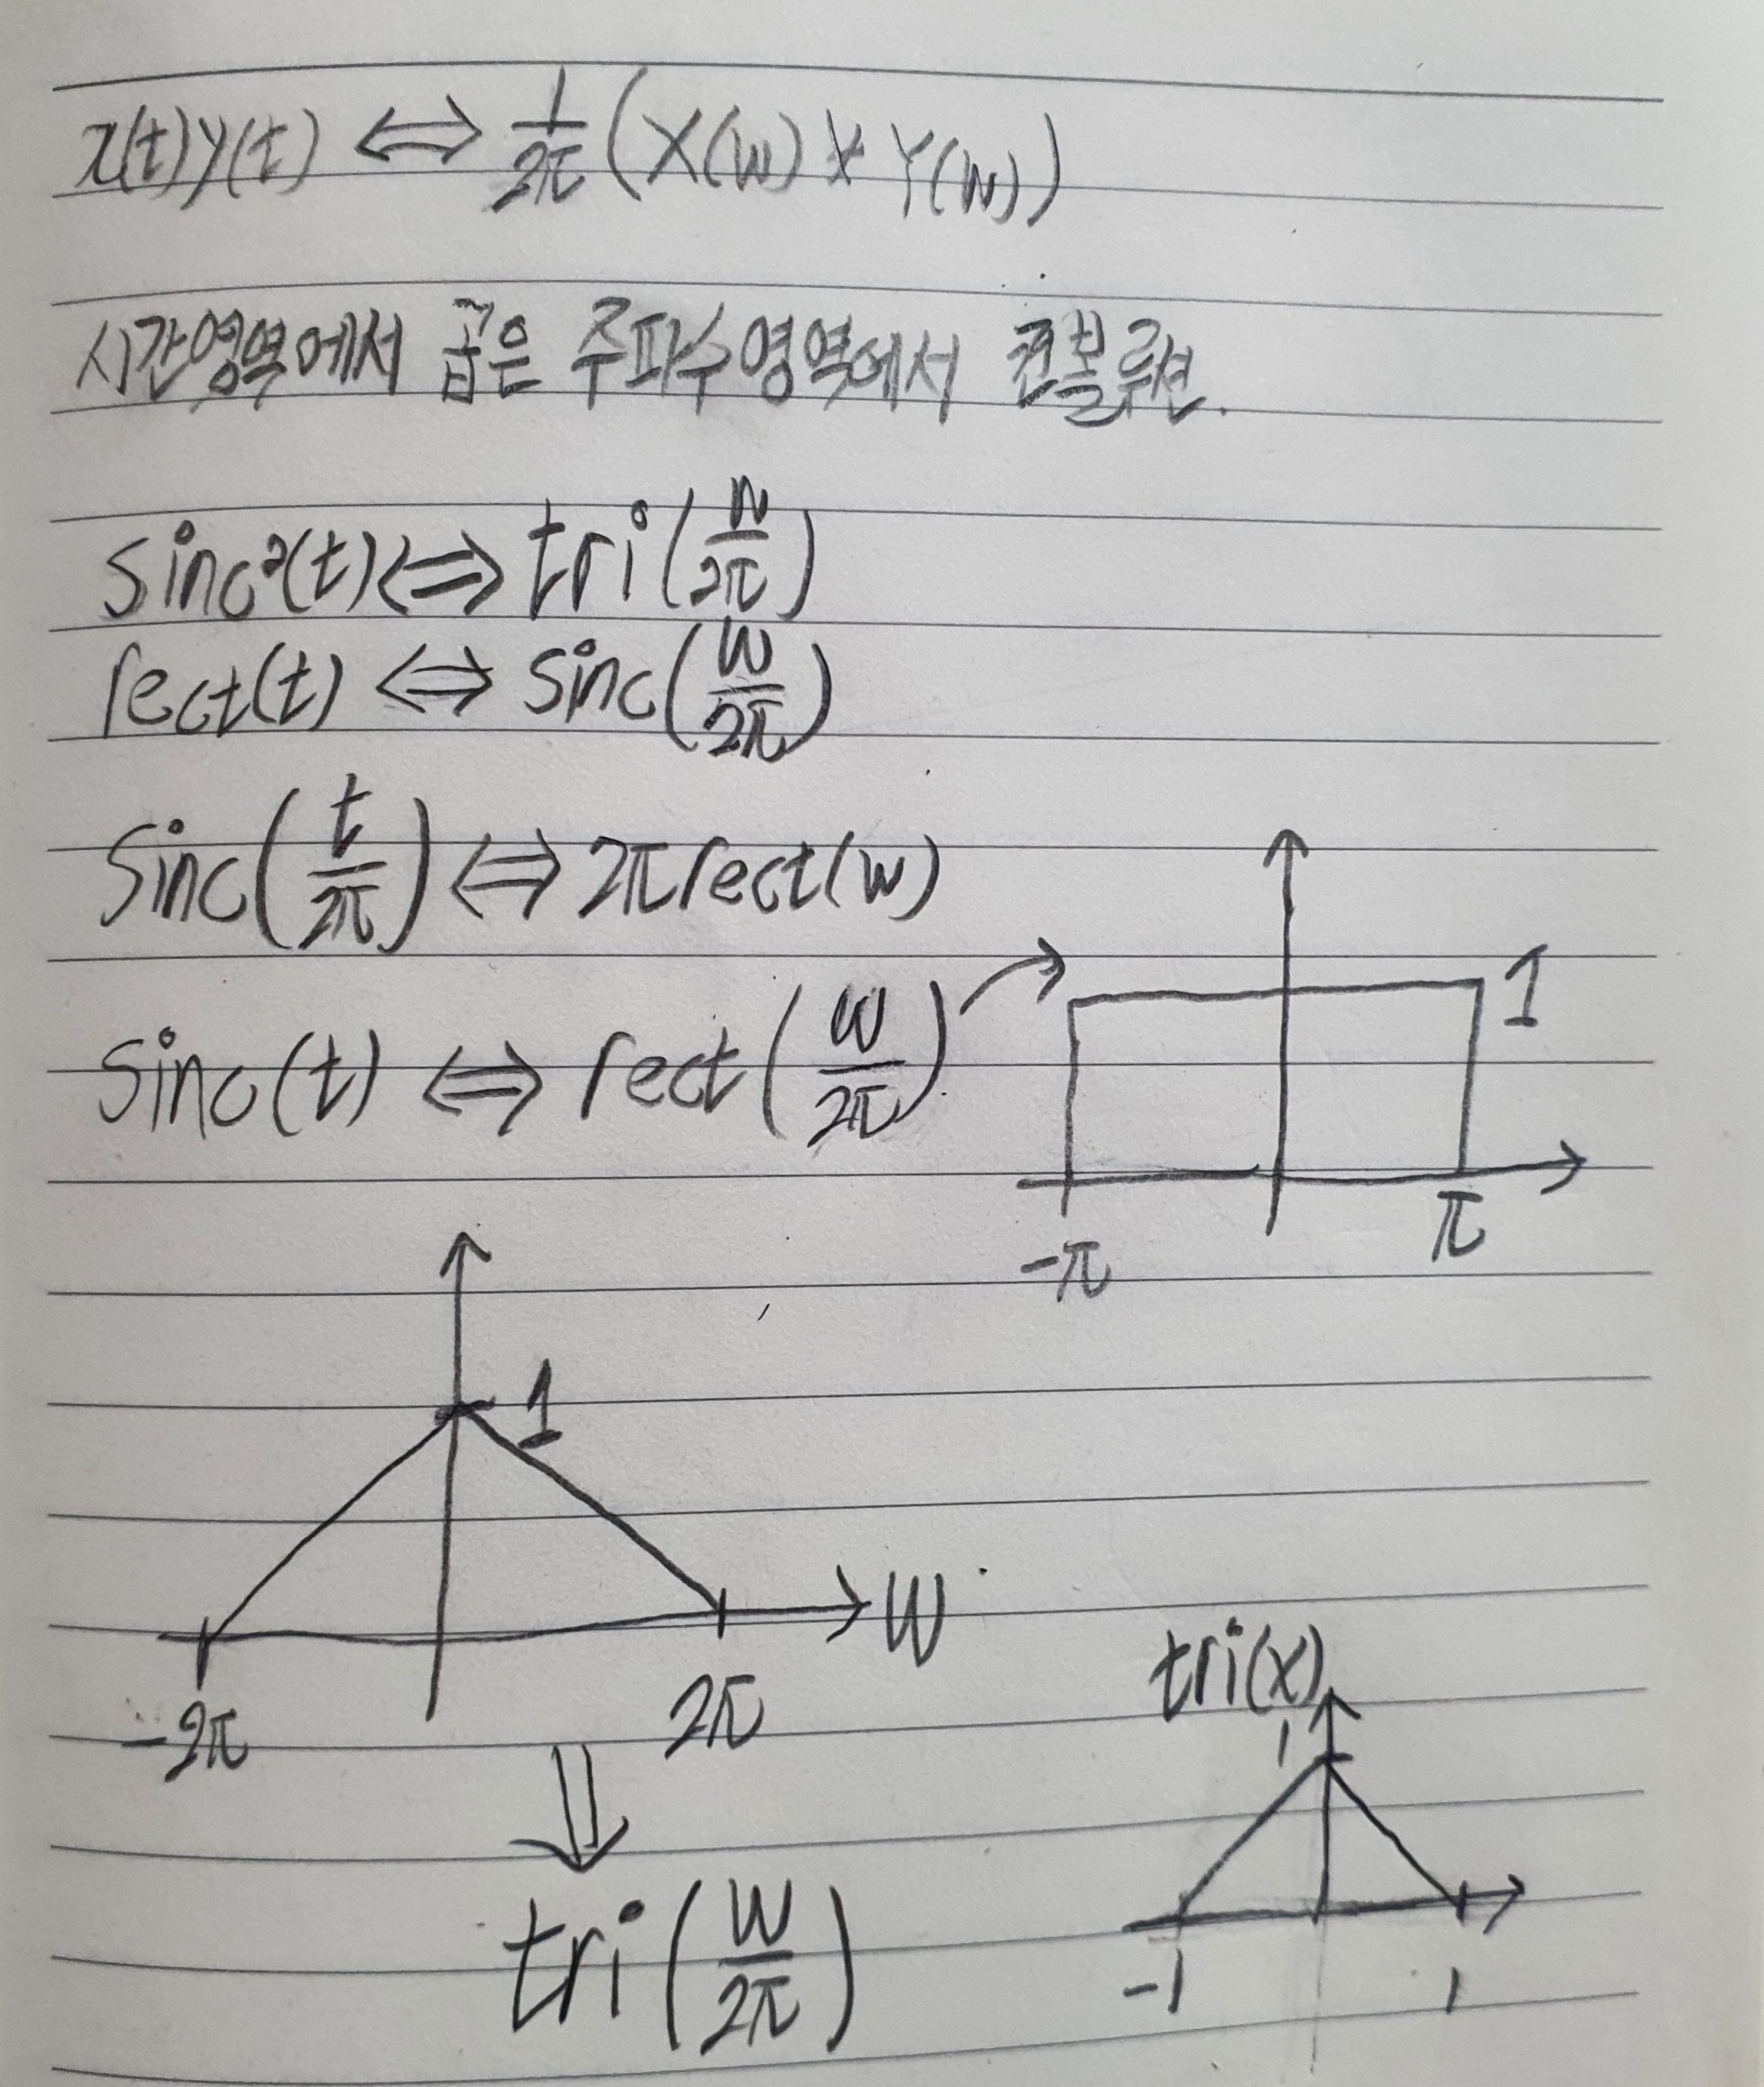 x(t)y(t) ⟺ 1/2π (X(w) * Y(w))
시간영역에서 곱은 주파수영역에서 컨볼루션.
sinc²(t) ⟺ tri(w/2π)
rect(t) ⟺ sinc(w/2π)
sinc(t/2π) ⟺ 2π rect(w)
sinc(t) ⟺ rect(w/2π)
1
-π π
1
w
-2π 2π
tri(x)
1
-1 1
tri(w/2π)